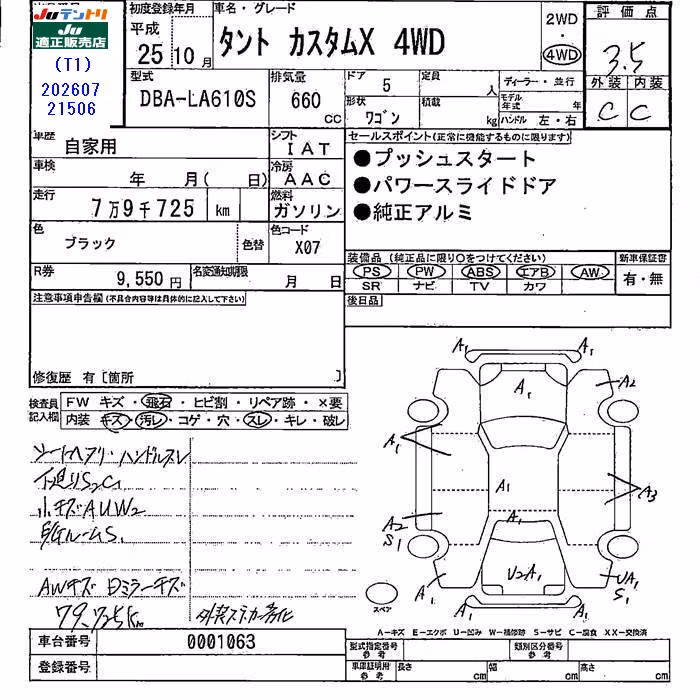 Juテントリ
JU
適正販売店
(T1)
202607
21506
初度登録年月
平成
25 10 月
車名・グレード
タント カスタムX 4WD
2WD
・
4WD
評価点
3.5
外装 内装
C C
型式
DBA-LA610S
排気量
660
cc
ドア
5
定員
人
形状
ワゴン
積載
kg
ディーラー・並行
モデル年式
年
ハンドル 左・右
車歴
自家用
シフト
IAT
車検
年 月( 日)
冷房
AAC
走行
7万9千725 km
燃料
ガソリン
色
ブラック
色替
色コード
X07
R券
9,550 円
名変通知期限
月 日
セールスポイント(正常に機能するものに限ります)
●プッシュスタート
●パワースライドドア
●純正アルミ
装備品 (純正品に限り○をつけてください)
新車保証書
PS PW ABS エアB AW
SR ナビ TV カワ
有・無
後日品
注意事項申告欄(不具合内容等は具体的に記入して下さい)
修復歴 有〔箇所 〕
検査員記入欄
FW キズ・飛石・ヒビ割・リペア跡・×要
内装 キズ・汚レ・コゲ・穴・スレ・キレ・破レ
シートヘタリ・ハンドルスレ
下廻りS2C1
小キズAUW2
S1
AWキズ ドミラーキズ
79.725km
A1 A1
A1 A2
A1
A1 A3
A2
S1
A1
U2A1
A1
UA1
S1
A1 A1
スペア
A-キズ E-エクボ U-凹み W-補修跡 S-サビ C-腐食 XX-交換済
車台番号
0001063
登録番号
型式指定番号
参考
類別区分番号
参考
車庫証明用
参考
長さ
cm
幅
cm
高さ
cm